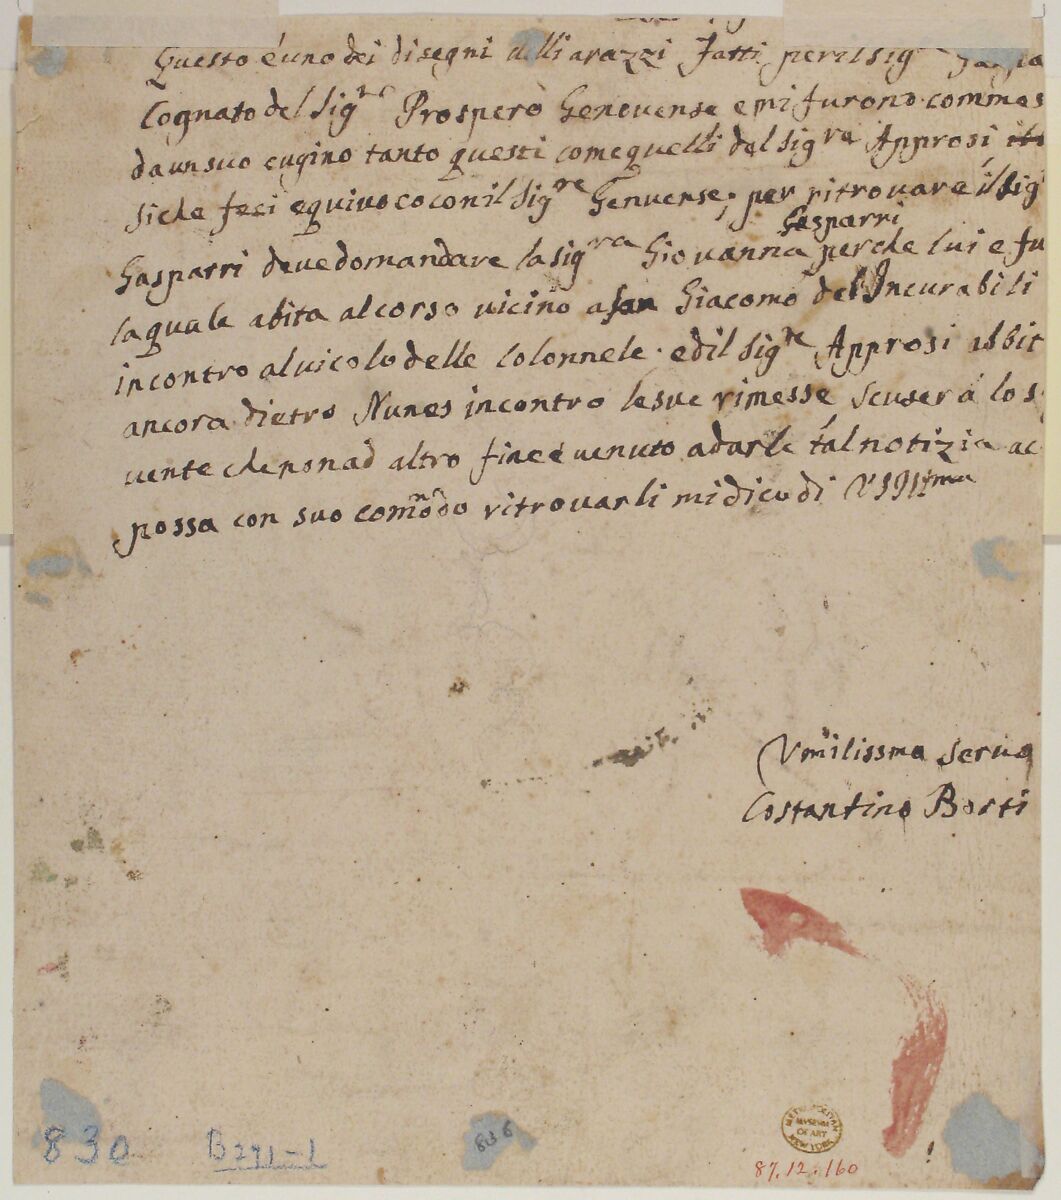 Questo é uno dei disegni delli arazzi fatti peril sig
Cognato del Sig.re Prospero Genouense e mi furono commes
da un suo cugino tanto questi come quelli del Sig.ra Approsi
si che feci equivoco con il Sig.re Genuense; per ritrovare il Sig
Gasparri
Gasparri deue domandare la sig.ra Giouanna perche lui e fu
la quale abita al corso uicino a san Giacomo del Incurabili
incontro al uicolo delle Colonnele. ed il Sig.re Approsi abbit
ancora dietro Nunes incontro le sue rimesse scuserá lo s
uente che non ad altro fine é uenuto a darle tal notizia ac
possa con suo comodo ritrouarli mi dico di VS Illma
Vmilissma Seruo
Costantino Borti
830
B 291-1
METROPOLITAN MUSEUM OF ART NEW YORK
87.12.160